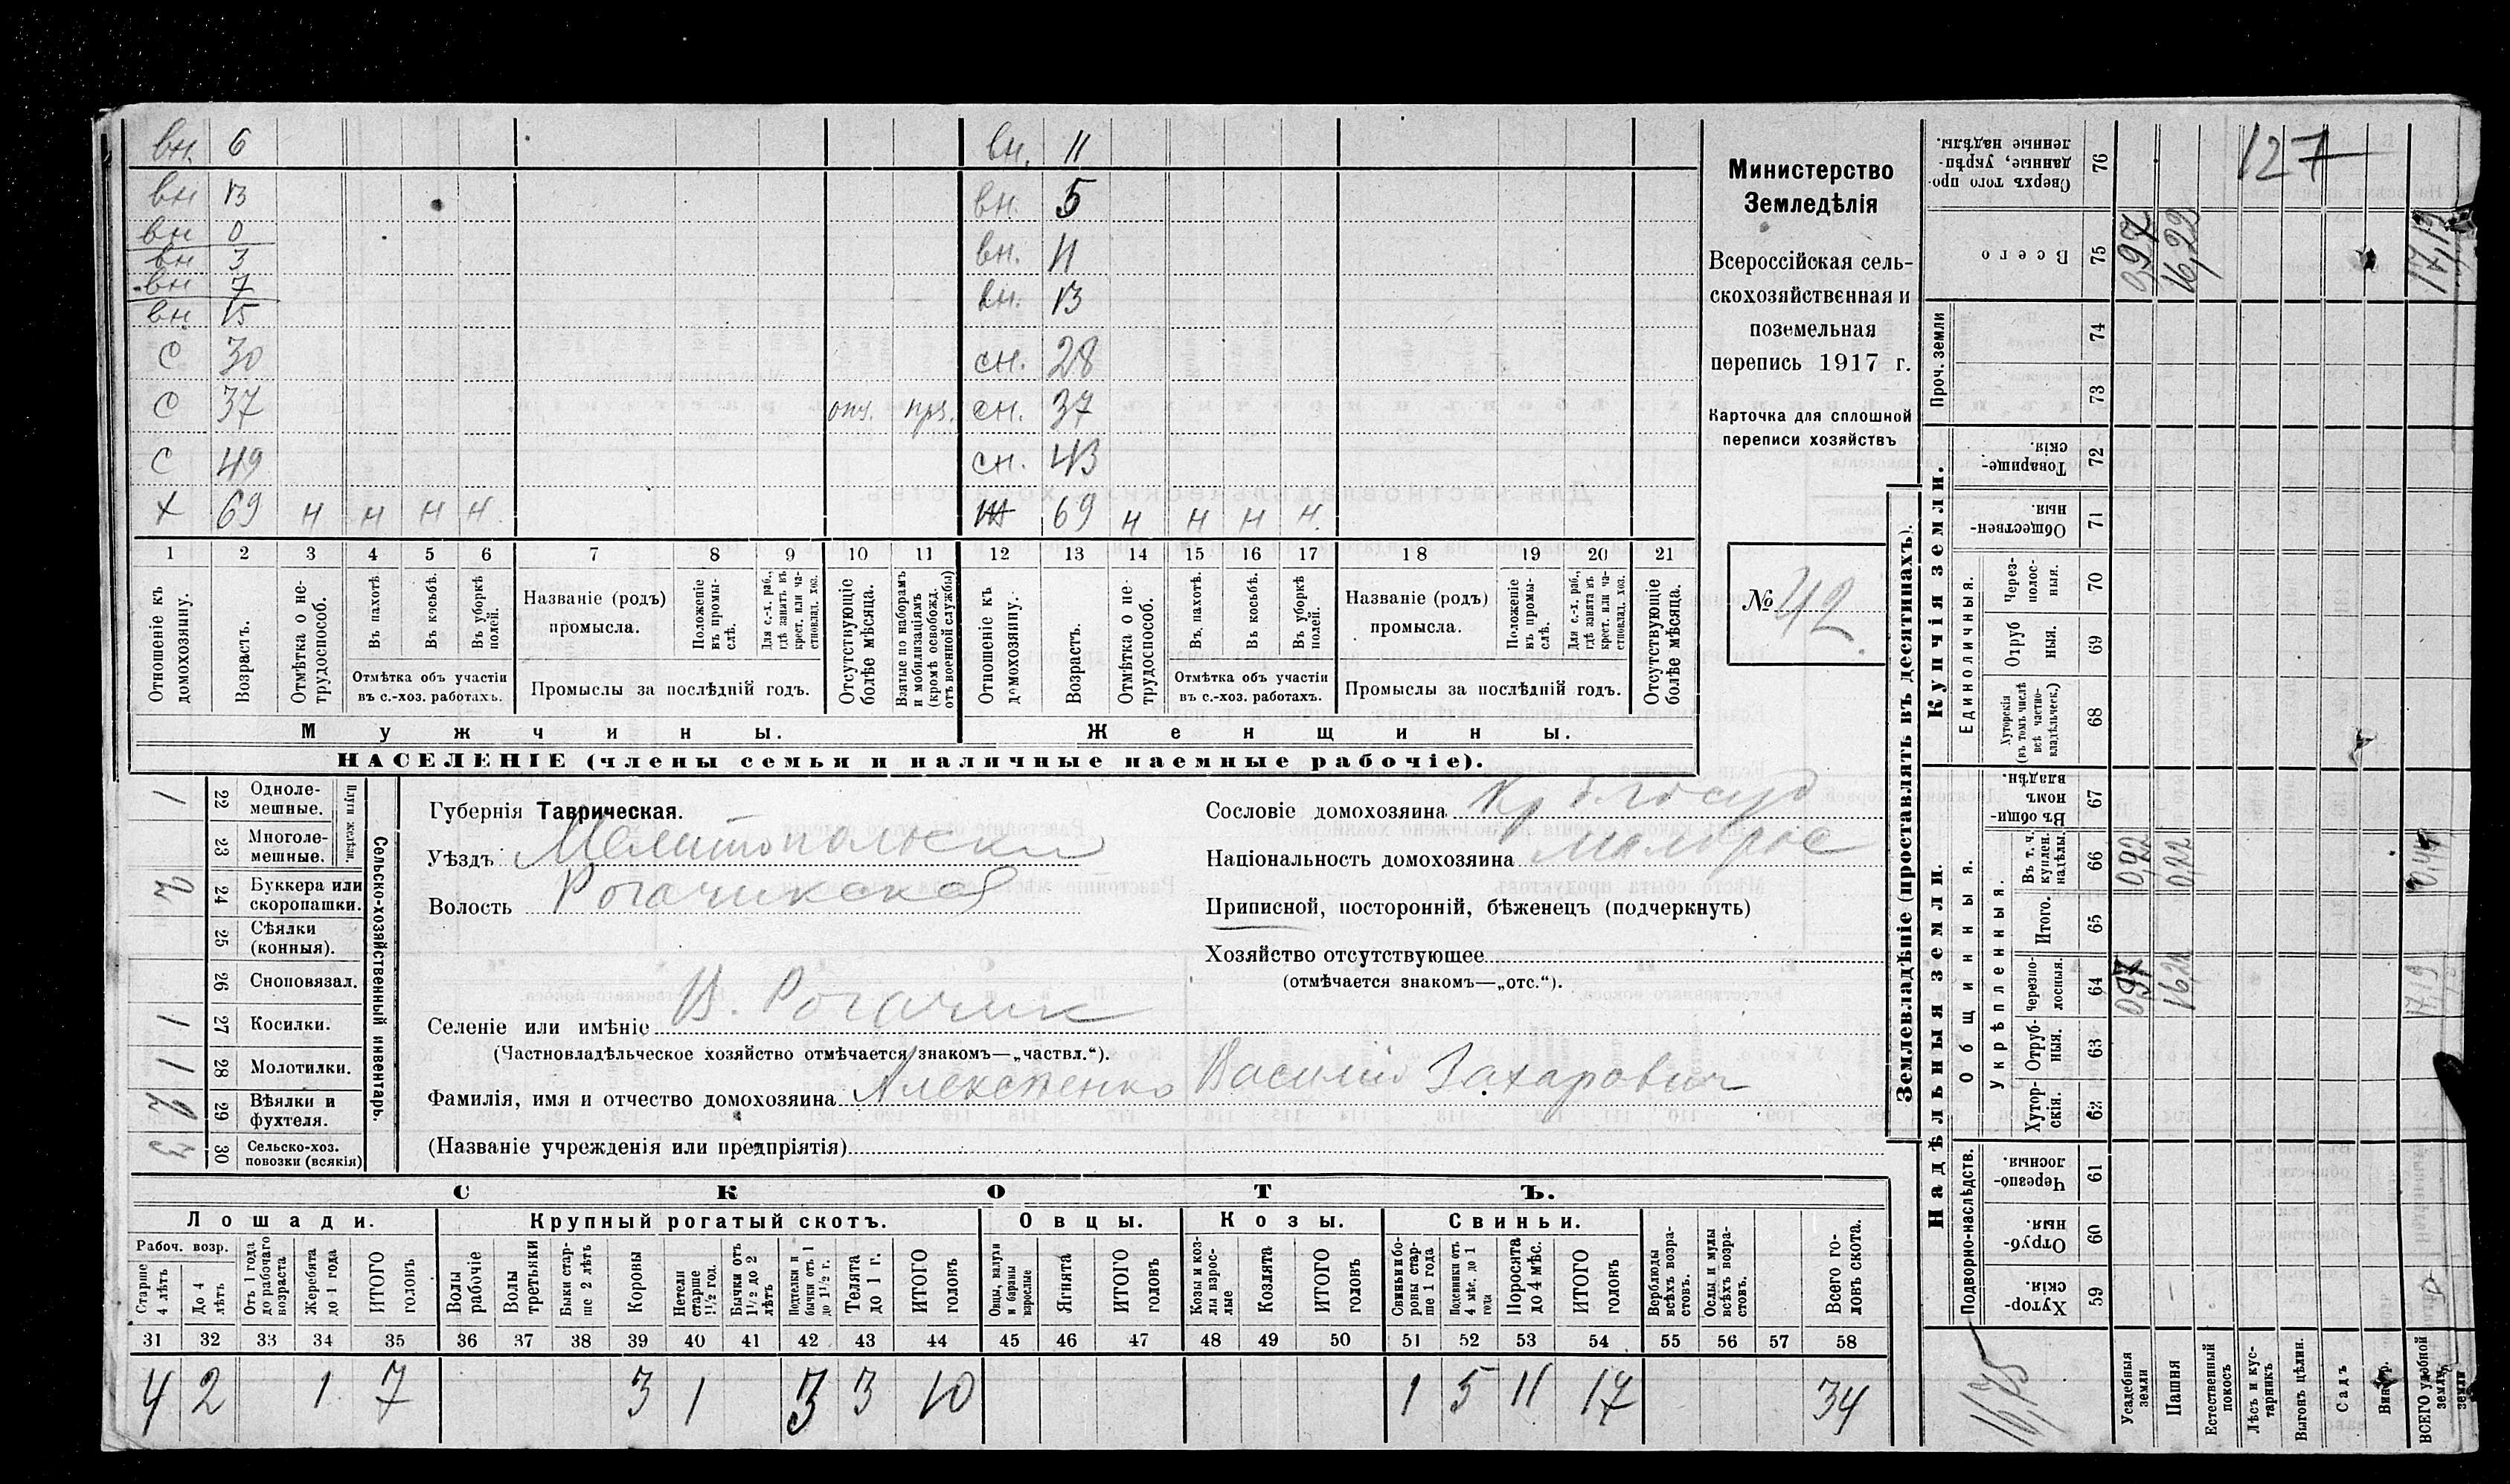 вн. 6 вн. 11
вн 13 вн. 5
вн 0 вн. 11
вн 3
вн 7 вн. 13
вн 15
с 30 сн. 28
с 37 отс. прз. сн. 37
с 49 сн. 43
х 69 н н н н 69 н н н н.
1 2 3 4 5 6 7 8 9 10 11 12 13 14 15 16 17 18 19 20 21
Отношеніе къ домохозяину.
Возрастъ.
Отмѣтка о нетрудоспособ.
Въ пахотѣ
Въ косьбѣ.
Въ уборкѣ полей.
Отмѣтка объ участіи
въ с.-хоз. работахъ.
Названіе (родъ)
промысла.
Положеніе въ промыслѣ.
Для с.-х. раб., гдѣ занятъ въ крест. или частновлад. хоз.
Промыслы за послѣдній годъ.
Отсутствующіе болѣе мѣсяца.
Взятые по наборамъ и мобилизаціямъ (кромѣ освобожд. отъ военной службы)
Отношеніе къ домохозяину.
Возрастъ.
Отмѣтка о нетрудоспособ.
Въ пахотѣ.
Въ косьбѣ.
Въ уборкѣ полей.
Отмѣтка объ участіи
въ с.-хоз. работахъ.
Названіе (родъ)
промысла.
Положеніе въ промыслѣ.
Для с.-х. раб., гдѣ занята въ крест. или частновлад. хоз.
Промыслы за послѣдній годъ.
Отсутствующіе болѣе мѣсяца.
Мужчины. Женщины.
НАСЕЛЕНІЕ (члены семьи и наличные наемные рабочіе).
Министерство
Земледѣлія
Всероссійская сель-
скохозяйственная и
поземельная
перепись 1917 г.
Карточка для сплошной
переписи хозяйствъ
№ 42
1 22 Однолемешные.
23 Многолемешные.
Плуги желѣзн.
2 24 Буккера или скоропашки.
25 Сѣялки (конныя).
26 Сноповязал.
1 27 Косилки.
1 28 Молотилки.
2 29 Вѣялки и фухтеля.
3 30 Сельско-хоз. повозки (всякія)
Сельско-хозяйственный инвентарь.
Губернія Таврическая.
Уѣздъ Мелитопольски
Волость Рогачикской
Сословіе домохозяина Кр б. госуд
Національность домохозяина малорос
Приписной, посторонній, бѣженецъ (подчеркнуть)
Хозяйство отсутствующее
(отмѣчается знакомъ—„отс.“).
Селеніе или имѣніе В. Рогачик
(Частновладѣльческое хозяйство отмѣчается знакомъ—„частвл.“).
Фамилія, имя и отчество домохозяина Алексеенко Василий Захарович
(Названіе учрежденія или предпріятія)
СКОТЪ.
Лошади. Крупный рогатый скотъ. Овцы. Козы. Свиньи.
Рабоч. возр.
Старше 4 лѣтъ
До 4 лѣтъ
Отъ 1 года до рабочаго возраста
Жеребята до 1 года
ИТОГО головъ
Волы рабочіе
Волы третьяки
Быки старше 2 лѣтъ
Коровы
Нетели старше 1½ год.
Бычки отъ 1½ до 2 лѣтъ
Подтелки и бычки отъ 1 до 1½ г.
Телята до 1 г.
ИТОГО головъ
Овцы, валухи и бараны взрослые
Ягнята
ИТОГО головъ
Козы и козлы взрослые
Козлята
ИТОГО головъ
Свиньи и боровы старше 1 года
Подсвинки отъ 4 мѣс. до 1 года
Поросята до 4 мѣс.
ИТОГО головъ
Верблюды всѣхъ возрастовъ.
Ослы и мулы всѣхъ возрастовъ.
Всего головъ скота.
31 32 33 34 35 36 37 38 39 40 41 42 43 44 45 46 47 48 49 50 51 52 53 54 55 56 57 58
4 2 1 7 3 1 3 3 10 1 5 11 17 34
Землевладѣніе (проставлять въ десятинахъ).
Надѣльныя земли. Купчія земли. Проч. земли
Подворно-наслѣдств.
Общинныя.
Укрѣпленныя.
Единоличныя.
Сверхъ того проданные, укрѣпленные надѣлы. 76 127
Всего 75 0,97 16,22 17,19
74
73
Товарищескія. 72
Общественныя. 71
Черезполосныя. 70
Отрубныя. 69
Хуторскія (въ томъ числѣ всѣ частновладѣльческ.) 68
Въ общинномъ владѣн. 67
Въ т. ч. куплен. надѣлы. 66 0,22 0,22 0,44
Итого. 65
Черезполосныя. 64 0,97 16,22 17,19
Отрубныя. 63
Хуторскія. 62
Черезполосныя. 61
Отрубныя 60
Хуторскія. 59
16,75
Усадебныя земли
Пашня
Естественный покосъ
Лѣсъ и кустарникъ.
Выгонъ цѣлин.
Садъ
Виногр.
ВСЕГО удобной земли